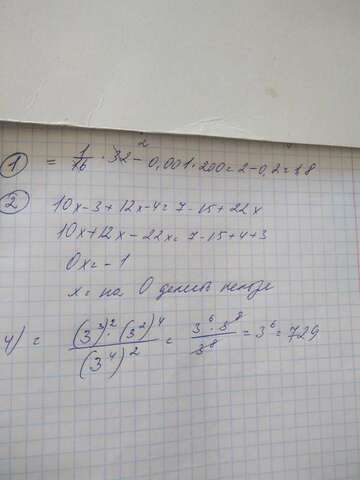 1 = 1/16 · 32 - 0,001 · 200 = 2 - 0,2 = 1,8
2
2 10x - 3 + 12x - 4 = 7 - 15 + 22x
10x + 12x - 22x = 7 - 15 + 4 + 3
0x = -1
x = на 0 делить нельзя
4) = (3³)² · (3²)⁴ / (3⁴)² = 3⁶ · 3⁸ / 3⁸ = 3⁶ = 729